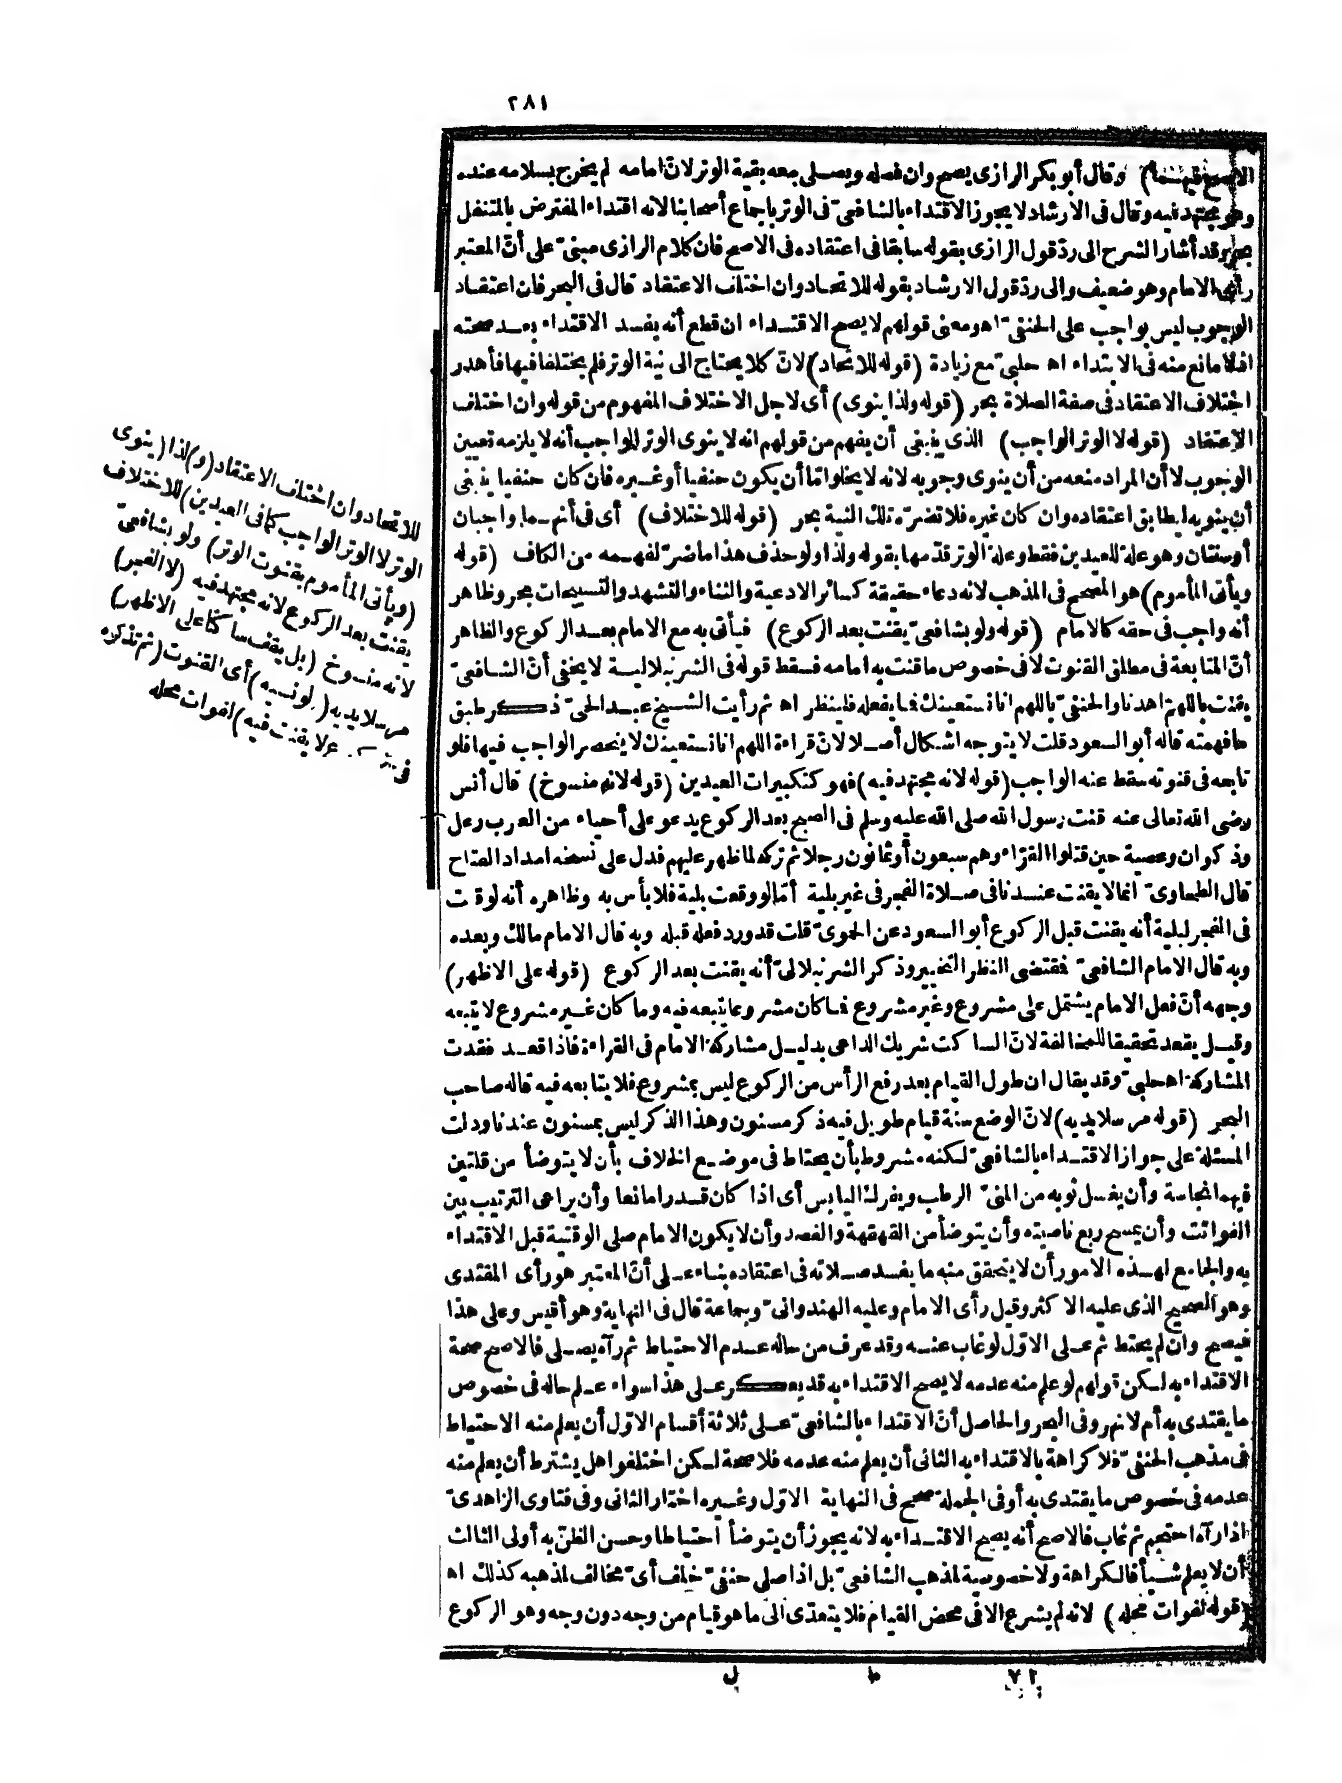 ٢٨١
الاصح فيهما) وقال أبو بكر الرازى يصح وان فصله ويصلى معه بقية الوتر لانّ امامه لم يخرج بسلامه عنده
وهو مجتهد فيه وقال فى الارشاد لا يجوز الاقتداء بالشافعىّ فى الوتر باجماع أصحابنا لانه اقتداء المفترض بالمتنفل
بحر وقد أشار الشرح الى ردّ قول الرازى بقوله سابقا فى اعتقاده فى الاصح فان كلام الرازى مبنىّ على أنّ المعتبر
رأى الامام وهو ضعيف والى ردّ قول الارشاد بقوله للاتحاد وان اختلف الاعتقاد قال فى البحر فان اعتقاد
الوجوب ليس بواجب على الحنفىّ اه ومعنى قولهم لا يصح الاقتداء ان قطع أنه يفسد الاقتداء بعد صحته
اذ لا مانع منه فى الابتداء اه حلبىّ مع زيادة (قوله للاتحاد) لانّ كلا يحتاج الى نية الوتر فلم يختلفا فيها فأهدر
اختلاف الاعتقاد فى صفة الصلاة بحر (قوله ولذا ينوى) أى لاجل الاختلاف المفهوم من قوله وان اختلف
الاعتقاد (قوله لا الوتر الواجب) الذى ينبغى أن يفهم من قولهم انه لا ينوى الوتر الواجب أنه لا يلزمه تعيين
الوجوب لا أن المراد منعه من أن ينوى وجوبه لانه لا يخلو امّا أن يكون حنفيا أو غيره فان كان حنفيا ينبغى
أن ينويه ليطابق اعتقاده وان كان غيره فلا تضرّه تلك النية بحر (قوله للاختلاف) أى فى أنهما واجبان
أو سنتان وهو علة للعيدين فقط وعلة الوتر قدّمها بقوله ولذا ولو حذف هذا ما ضرّ لفهمه من الكاف (قوله
ويأتى المأموم) هو الصحيح فى المذهب لانه دعاء حقيقة كسائر الادعية والثناء والتشهد والتسبيحات بحر وظاهر
أنه واجب فى حقه كالامام (قوله ولو بشافعىّ يقنت بعد الركوع) فيأتى به مع الامام بعد الركوع والظاهر
أنّ المتابعة فى مطلق القنوت لا فى خصوص ما قنت به امامه فسقط قوله فى الشرنبلالية لا يخفى أنّ الشافعىّ
يقنت باللهمّ اهدنا والحنفىّ باللهم انا نستعينك فما يفعله فلينظر اه ثم رأيت الشيخ عبد الحىّ ذكر طبق
ما فهمته قاله أبو السعود قلت لا يتوجه اشكال أصلا لانّ قراءة اللهم انا نستعينك لا ينحصر الواجب فيها فلو
تابعه فى قنوته سقط عنه الواجب (قوله لانه مجتهد فيه) فهو كتكبيرات العيدين (قوله لانه منسوخ) قال أنس
رضى الله تعالى عنه قنت رسول الله صلى الله عليه وسلم فى الصبح بعد الركوع يدعو على أحياء من العرب رعل
وذكوان وعصية حين قتلوا القرّاء وهم سبعون أو ثمانون رجلا ثم تركه لما ظهر عليهم فدل على نسخه امداد الفتاح
قال الطحاوىّ انما لا يقنت عندنا فى صلاة الفجر فى غير بلية أمّا لو وقعت بلية فلا بأس به وظاهره أنه لو قنت
فى الفجر لبلية أنه يقنت قبل الركوع أبو السعود عن الحموىّ قلت قد ورد فعله قبله وبه قال الامام مالك وبعده
وبه قال الامام الشافعىّ فقتضى النظر التخيير وذكر الشرنبلالىّ أنه يقنت بعد الركوع (قوله على الاظهر)
وجهه أنّ فعل الامام يشتمل على مشروع وغير مشروع فما كان مشروعا يتبعه فيه وما كان غير مشروع لا يتبعه
وقيل يقعد تحقيقا للمخالفة لانّ الساكت شريك الداعى بدليل مشاركة الامام فى القراءة فاذا قعد فقدت
المشاركة اه حلبىّ وقد يقال ان طول القيام بعد رفع الرأس من الركوع ليس بمشروع فلا يتابعه فيه قاله صاحب
البحر (قوله مرسلا يديه) لانّ الوضع سنة قيام طويل فيه ذكر مسنون وهذا الذكر ليس بمسنون عندنا ودلت
المسئلة على جواز الاقتداء بالشافعىّ لكنه مشروط بأن يحتاط فى موضع الخلاف بأن لا يتوضأ من قلتين
فيهما نجاسة وأن يغسل ثوبه من المنىّ الرطب ويفرك اليابس أى اذا كان قدرا مانعا وأن يراعى الترتيب بين
الفوائت وأن يمسح ربع ناصيته وأن يتوضأ من القهقهة والفصد وأن لا يكون الامام صلى الوقتية قبل الاقتداء
به والجامع لهذه الامور أن لا يتحقق منه ما يفسد صلاته فى اعتقاده بناء على أنّ المعتبر هو رأى المقتدى
وهو الصحيح الذى عليه الاكثر وقيل رأى الامام وعليه الهندوانىّ وجماعة قال فى النهاية وهو أقيس وعلى هذا
فيصح وان لم يحتط ثم على الاوّل لو غاب عنه وقد عرف من حاله عدم الاحتياط ثم رآه يصلى فالاصح صحة
الاقتداء به لكن قولهم لو علم منه عدمه لا يصح الاقتداء به قد يعكر على هذا سواء علم حاله فى خصوص
ما يقتدى به أم لا نهر وفى البحر والحاصل أنّ الاقتداء بالشافعىّ على ثلاثة أقسام الاوّل أن يعلم منه الاحتياط
فى مذهب الحنفىّ فلا كراهة بالاقتداء به الثانى أن يعلم منه عدمه فلا صحة لكن اختلفوا هل يشترط أن يعلم منه
عدمه فى خصوص ما يقتدى به أو فى الجملة صحح فى النهاية الاوّل وغيره اختار الثانى وفى فتاوى الزاهدىّ
اذا رآه احتجم ثم غاب فالاصح أنه يصح الاقتداء به لانه يجوز أن يتوضأ احتياطا وحسن الظنّ به أولى الثالث
أن لا يعلم شيأ فالكراهة ولا خصوصية لمذهب الشافعىّ بل اذا صلى حنفىّ خلف أىّ مخالف لمذهبه كذلك اه
(قوله لفوات محله) لانه لم يشرع الا فى محض القيام فلا يتعدّى الى ما هو قيام من وجه دون وجه وهو الركوع
للاتحاد وان اختلف الاعتقاد (و) لذا (ينوى
الوتر لا الوتر الواجب كما فى العيدين) للاختلاف
(ويأتى المأموم بقنوت الوتر) ولو بشافعىّ
يقنت بعد الركوع لانه مجتهد فيه (لا الفجر)
لانه منسوخ (بل يقف ساكتا على الاظهر)
مرسلا يديه (ولو نسيه) أى القنوت (ثم تذكره
فى الركوع لا يقنت فيه) لفوات محله
٧٢ ط ل